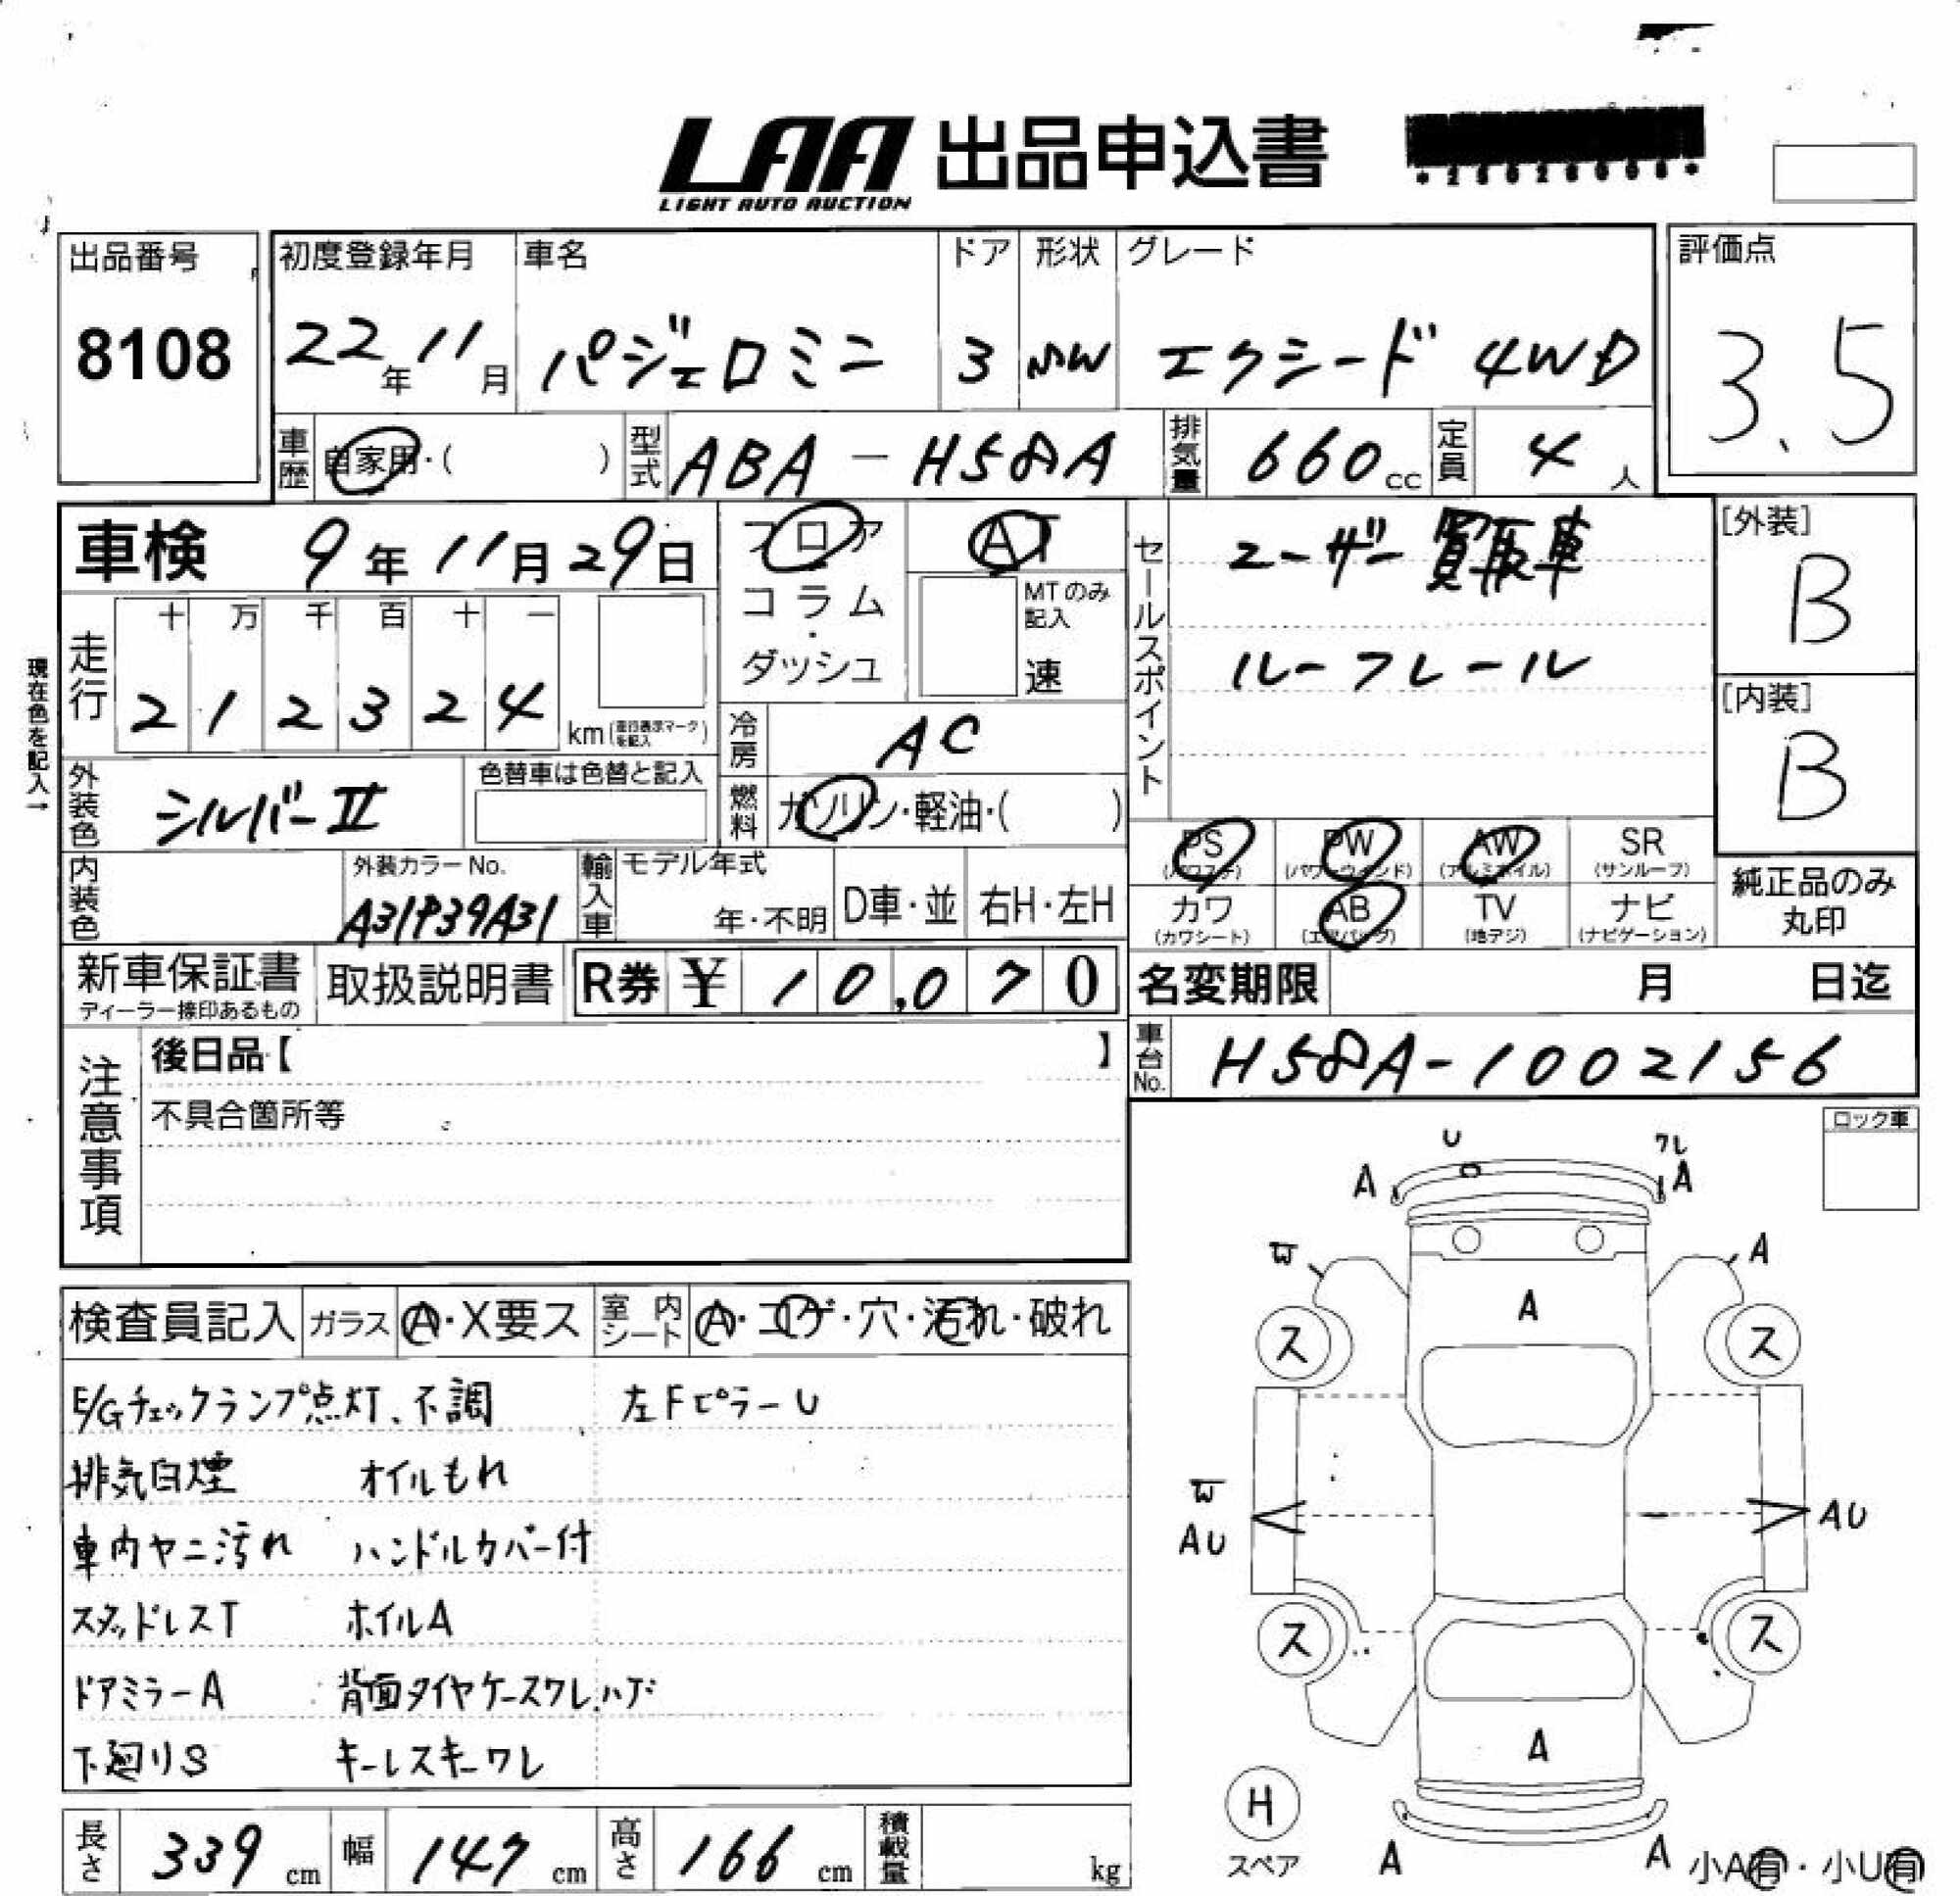 LAA 出品申込書
LIGHT AUTO AUCTION
出品番号
8108
初度登録年月
22年11月
車名
パジェロミニ
ドア
3
形状
SW
グレード
エクシード 4WD
評価点
3.5
車歴
自家用・( )
型式
ABA-H58A
排気量
660cc
定員
4人
車検 9年11月29日
フロア
コラム
・
ダッシュ
AT
MTのみ記入
速
セールスポイント
ユーザー買取車
ルーフレール
[外装]
B
[内装]
B
現在色を記入→
走行
十 万 千 百 十 一
2 1 2 3 2 4
km(走行表示マークを記入)
冷房
AC
外装色
シルバーⅡ
色替車は色替と記入
燃料
ガソリン・軽油・( )
PS (パワステ)
PW (パワーウィンド)
AW (アルミホイル)
SR (サンルーフ)
カワ (カワシート)
AB (エアバッグ)
TV (地デジ)
ナビ (ナビゲーション)
純正品のみ丸印
内装色
外装カラーNo.
A31P39A31
輸入車
モデル年式
年・不明
D車・並
右H・左H
新車保証書
ディーラー捺印あるもの
取扱説明書
R券 ¥ 10,070
名変期限 月 日迄
車台No.
H58A-1002156
注意事項
後日品【 】
不具合箇所等
ロック車
検査員記入
ガラス
A・X要ス
室内シート
A・コゲ・穴・汚れ・破れ
E/Gチェックランプ点灯、不調
左FピラーU
排気白煙 オイルもれ
車内ヤニ汚れ ハンドルカバー付
スタッドレスT ホイルA
ドアミラーA 背面タイヤケースワレ.ハゲ
下廻りS キーレスキーワレ
U
ワレ
A
A
W
A
A
ス
ス
W
AU
AU
ス
ス
A
H
スペア
A
A
小A有・小U有
長さ
339cm
幅
147cm
高さ
166cm
積載量
kg